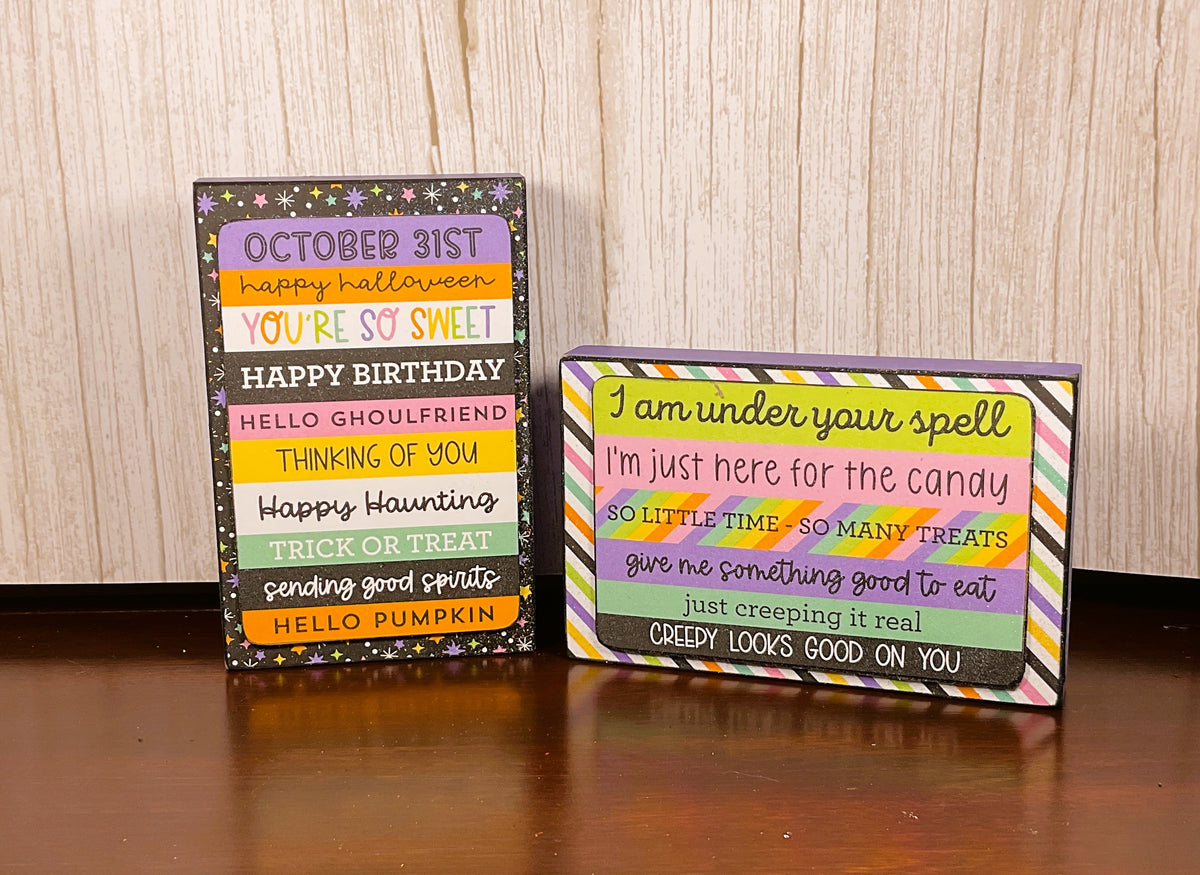 OCTOBER 31ST
happy halloween
YOU'RE SO SWEET
HAPPY BIRTHDAY
HELLO GHOULFRIEND
THINKING OF YOU
Happy Haunting
TRICK OR TREAT
sending good spirits
HELLO PUMPKIN
I am under your spell
I'm just here for the candy
SO LITTLE TIME - SO MANY TREATS
give me something good to eat
just creeping it real
CREEPY LOOKS GOOD ON YOU